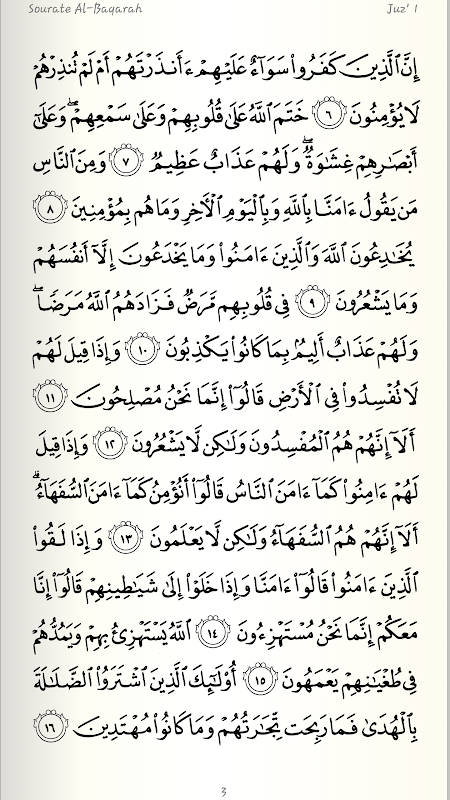 Sourate Al-Baqarah Juz' 1
إِنَّ ٱلَّذِينَ كَفَرُوا۟ سَوَآءٌ عَلَيْهِمْ ءَأَنذَرْتَهُمْ أَمْ لَمْ تُنذِرْهُمْ
لَا يُؤْمِنُونَ ٦ خَتَمَ ٱللَّهُ عَلَىٰ قُلُوبِهِمْ وَعَلَىٰ سَمْعِهِمْ ۖ وَعَلَىٰٓ
أَبْصَٰرِهِمْ غِشَٰوَةٌ ۖ وَلَهُمْ عَذَابٌ عَظِيمٌ ٧ وَمِنَ ٱلنَّاسِ
مَن يَقُولُ ءَامَنَّا بِٱللَّهِ وَبِٱلْيَوْمِ ٱلْءَاخِرِ وَمَا هُم بِمُؤْمِنِينَ ٨
يُخَٰدِعُونَ ٱللَّهَ وَٱلَّذِينَ ءَامَنُوا۟ وَمَا يَخْدَعُونَ إِلَّآ أَنفُسَهُمْ
وَمَا يَشْعُرُونَ ٩ فِى قُلُوبِهِم مَّرَضٌ فَزَادَهُمُ ٱللَّهُ مَرَضًا ۖ
وَلَهُمْ عَذَابٌ أَلِيمٌۢ بِمَا كَانُوا۟ يَكْذِبُونَ ١٠ وَإِذَا قِيلَ لَهُمْ
لَا تُفْسِدُوا۟ فِى ٱلْأَرْضِ قَالُوٓا۟ إِنَّمَا نَحْنُ مُصْلِحُونَ ١١
أَلَآ إِنَّهُمْ هُمُ ٱلْمُفْسِدُونَ وَلَٰكِن لَّا يَشْعُرُونَ ١٢ وَإِذَا قِيلَ
لَهُمْ ءَامِنُوا۟ كَمَآ ءَامَنَ ٱلنَّاسُ قَالُوٓا۟ أَنُؤْمِنُ كَمَآ ءَامَنَ ٱلسُّفَهَآءُ ۗ
أَلَآ إِنَّهُمْ هُمُ ٱلسُّفَهَآءُ وَلَٰكِن لَّا يَعْلَمُونَ ١٣ وَإِذَا لَقُوا۟
ٱلَّذِينَ ءَامَنُوا۟ قَالُوٓا۟ ءَامَنَّا وَإِذَا خَلَوْا۟ إِلَىٰ شَيَٰطِينِهِمْ قَالُوٓا۟ إِنَّا
مَعَكُمْ إِنَّمَا نَحْنُ مُسْتَهْزِءُونَ ١٤ ٱللَّهُ يَسْتَهْزِئُ بِهِمْ وَيَمُدُّهُمْ
فِى طُغْيَٰنِهِمْ يَعْمَهُونَ ١٥ أُو۟لَٰٓئِكَ ٱلَّذِينَ ٱشْتَرَوُا۟ ٱلضَّلَٰلَةَ
بِٱلْهُدَىٰ فَمَا رَبِحَت تِّجَٰرَتُهُمْ وَمَا كَانُوا۟ مُهْتَدِينَ ١٦
3